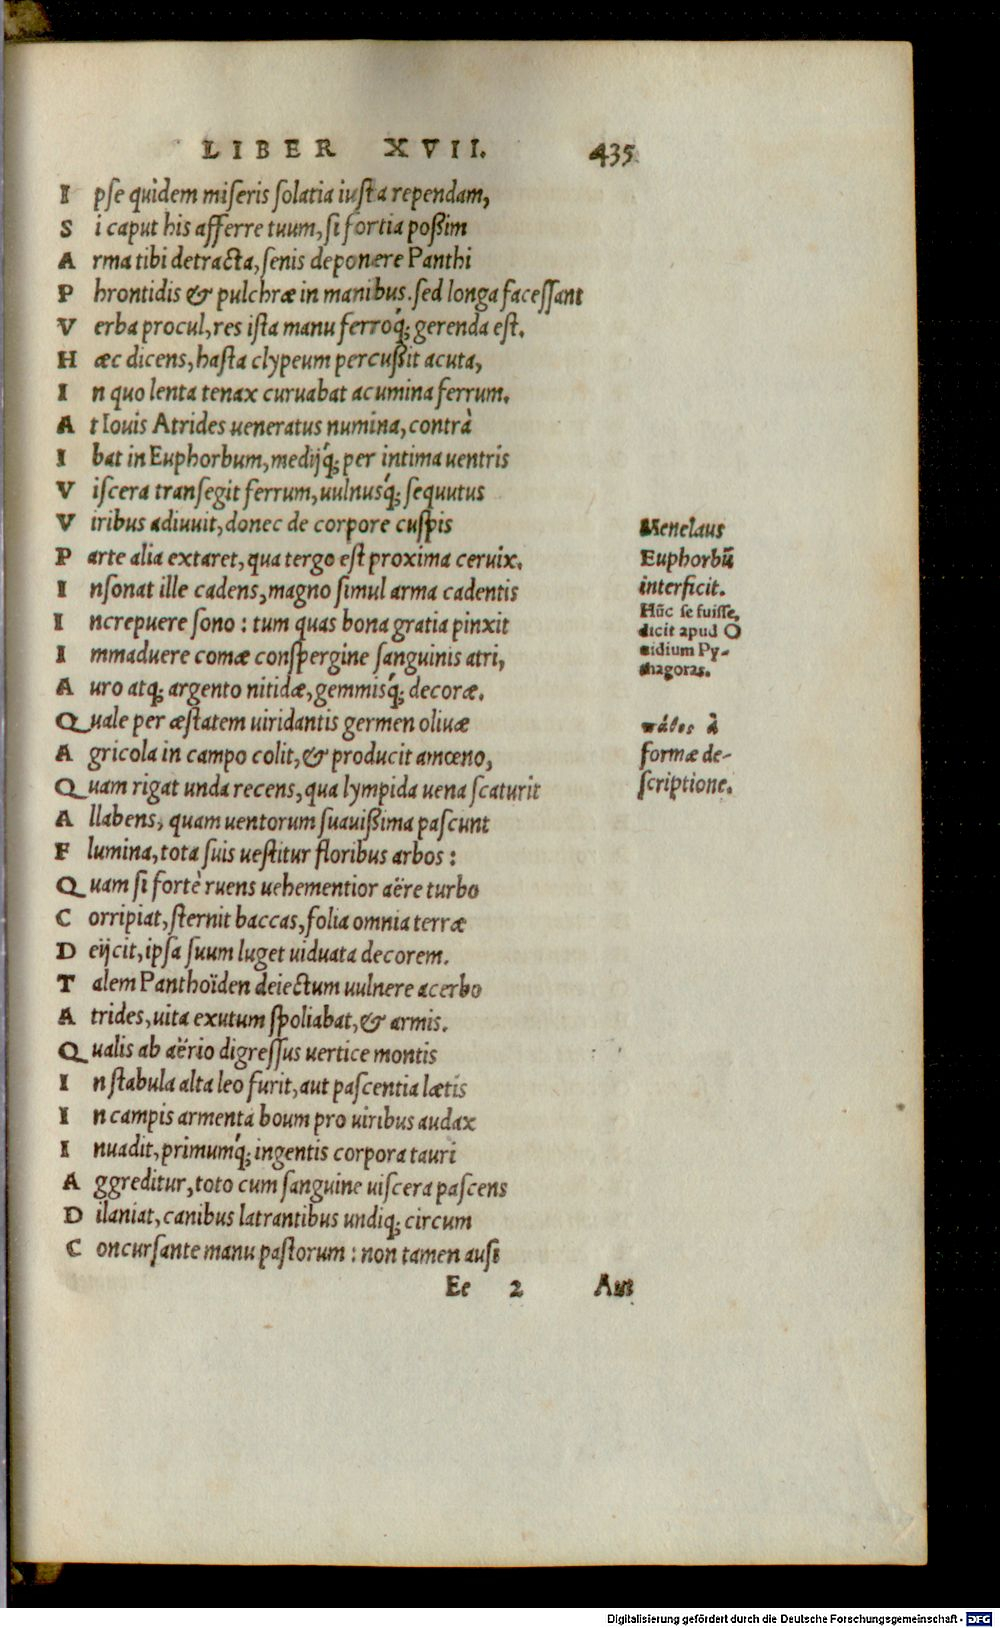 LIBER XVII. 435
Ipse quidem miseris solatia iusta rependam,
Si caput his afferre tuum, si fortia poßim
Arma tibi detracta, senis deponere Panthi
Phrontidis & pulchræ in manibus. sed longa facessant
Verba procul, res ista manu ferroq́; gerenda est.
Hæc dicens, hasta clypeum percußit acuta,
In quo lenta tenax curuabat acumina ferrum.
At Iouis Atrides ueneratus numina, contrà
Ibat in Euphorbum, medijq́; per intima uentris
Viscera transegit ferrum, uulnusq́; sequutus
Viribus adiuuit, donec de corpore cuspis
Parte alia extaret, qua tergo est proxima ceruix.
Insonat ille cadens, magno simul arma cadentis
Increpuere sono: tum quas bona gratia pinxit
Immaduere comæ conspergine sanguinis atri,
Auro atq; argento nitidæ, gemmisq́; decoræ.
Quale per æstatem uiridantis germen oliuæ
Agricola in campo colit, & producit amœno,
Quam rigat unda recens, qua lympida uena scaturit
Allabens, quam uentorum suauißima pascunt
Flumina, tota suis uestitur floribus arbos:
Quam si fortè ruens uehementior aëre turbo
Corripiat, sternit baccas, folia omnia terræ
Deijcit, ipsa suum luget uiduata decorem.
Talem Panthoïden deiectum uulnere acerbo
Atrides, uita exutum spoliabat, & armis.
Qualis ab aërio digressus uertice montis
In stabula alta leo furit, aut pascentia lætis
In campis armenta boum pro uiribus audax
Inuadit, primumq́; ingentis corpora tauri
Aggreditur, toto cum sanguine uiscera pascens
Dilaniat, canibus latrantibus undiq; circum
Concursante manu pastorum: non tamen ausi
Ee 2 Aut
Menelaus
Euphorbũ
interficit.
Hũc se fuisse,
dicit apud O
uidium Py-
thagoras.
πάθος à
formæ de-
scriptione.
Digitalisierung gefördert durch die Deutsche Forschungsgemeinschaft - DFG